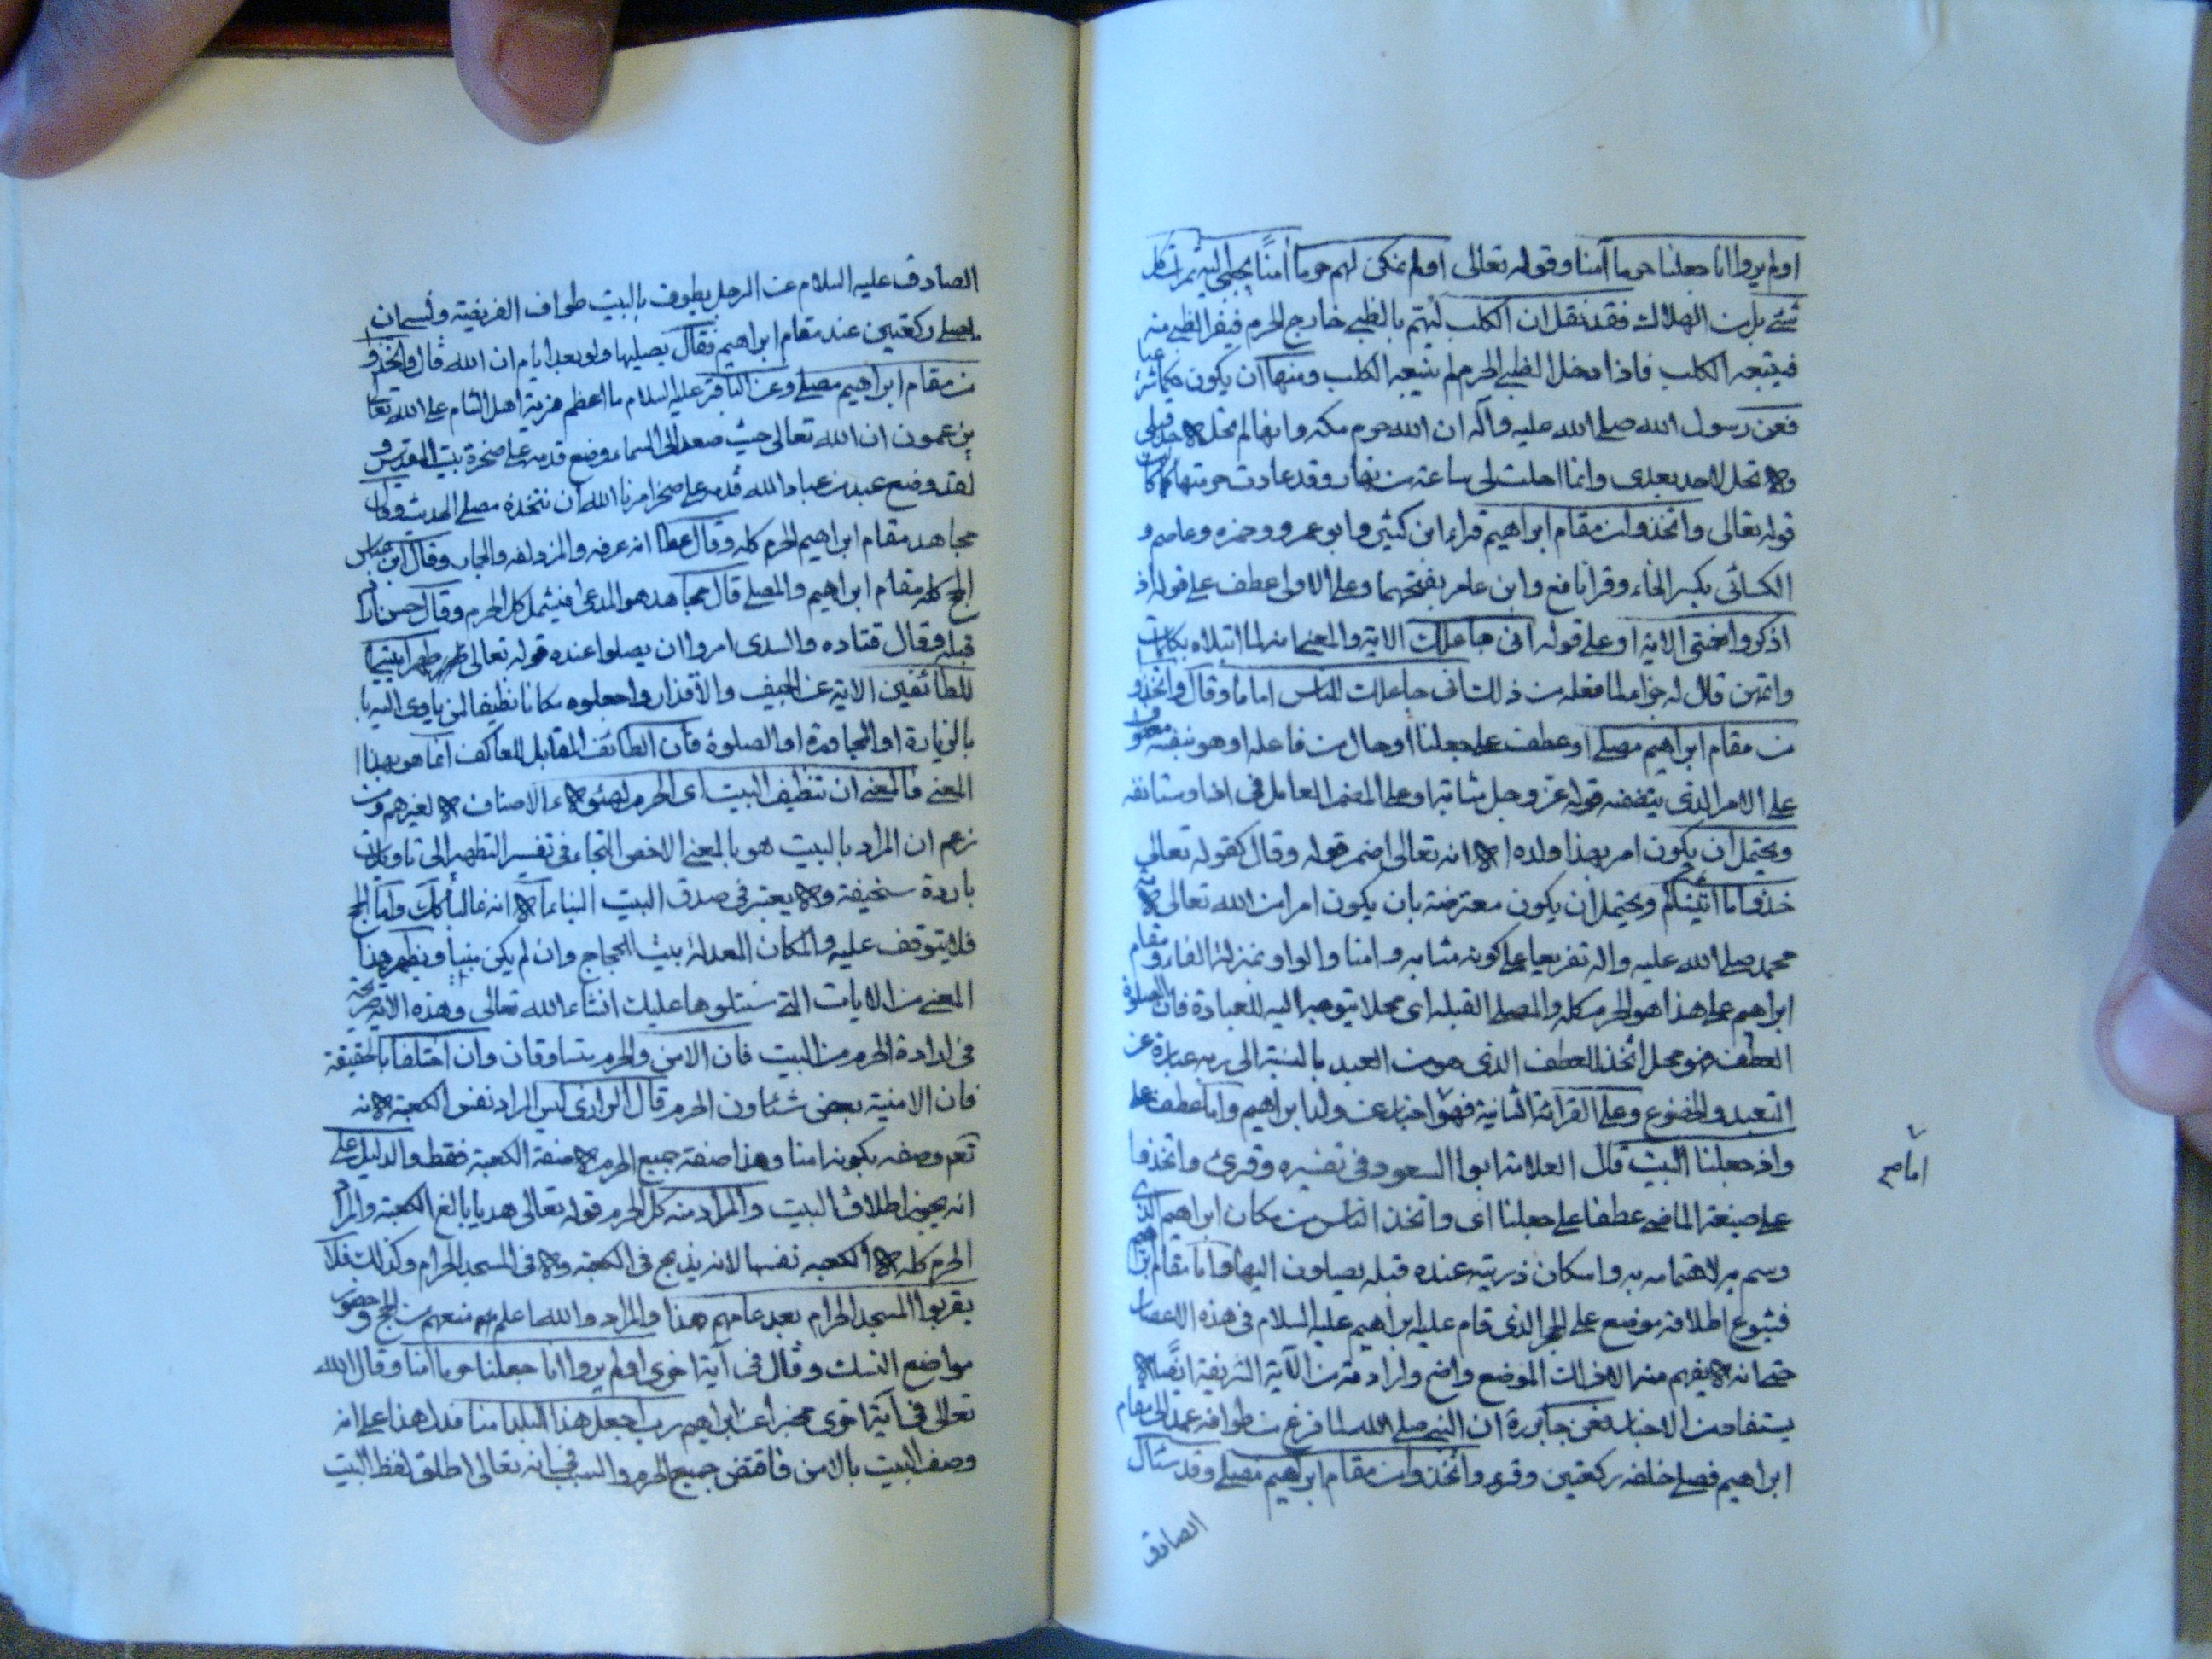 اولم يروا انا جعلنا حرما آمنا وقوله تعالى اولم نمكن لهم حرما آمنًا يجبى اليه ثمرات كل
شئ بل من الهلاك فقد نقل ان الكلب ليهم بالظبي خارج الحرم فيفر الظبي منه
فيتبعه الكلب فاذا دخل الظبي الحرم لم يتبعه الكلب ومنها ان يكون
فعن رسول الله صلى الله عليه وآله ان الله حرم مكه وانها لم تحل لاحد قبلي
ولا تحل لاحد بعدى وانما احلت لى ساعة من نهار وقد عادت حرمتها كما كانت
قوله تعالى واتخذوا من مقام ابراهيم قراء ابن كثير وابو عمرو وحمزه وعاصم و
الكسائي بكسر الخاء وقرا نافع وابن عامر بفتحهما وعلى الاولى عطف على قوله اذ
اذكروا نعمتي الاية او على قوله انى جاعلك الاية والمعنى انه لما ابتلاه بكلمات
واتمهن قال له جزاء لما فعله من ذلك انى جاعلك للناس اماما وقال واتخذوا
من مقام ابراهيم مصلى او عطف على جعلنا او حال من فاعله او هو بنفسه معطوف
على الامر الذى يتضمنه قوله عز وجل مثابة او على المضمر العامل فى اذ او مستانفه
ويحتمل ان يكون امر بهذا ولده الا انه تعالى اضمر قوله وقال كقوله تعالى
خذوا ما اتيناكم ويحتمل ان يكون معترضة بان يكون امرا من الله تعالى لامة
محمد صلى الله عليه واله تفريعا على كونه مثابه وامنا والواو بمنزلة الفاء ومقام
ابراهيم على هذا هو الحرم كله والمصلى القبله اى محلا يتوجه اليه للعبادة فان الصلوة
العطف فهو محل اتخذ للعطف الذى هو من العبد بالنسبة الى ربه عبارة عن
التعبد والخضوع وعلى القرائة الثانية فهو اخبار عن ولد ابراهيم واما عطف على
واذ جعلنا البيت قال العلامة ابو السعود فى تفسيره وقرئ واتخذوا
على صيغة الماضى عطفا على جعلنا اى واتخذ الناس من مكان ابراهيم الذى
وسم به لاهتمامه به واسكان ذريته عنده قبله يصلون اليها واما مقام ابراهيم
فشيوع اطلاقه موضع على الحجر الذى قام عليه ابراهيم عليه السلام فى هذه الاعصار
حتى انه لا يفهم منه الا ذلك الموضع واضح وارادته من الآية الشريفة ايضًا
يستفاد من الاخبار فعن جابر ان النبي صلى الله لما فرغ من طوافه عمد الى مقام
ابراهيم فصلى خلفه ركعتين وقرء واتخذوا من مقام ابراهيم مصلى وقد سئل
الصادق
الصادق عليه السلام عن الرجل يطوف بالبيت طواف الفريضة ونسى ان
يصلى ركعتين عند مقام ابراهيم فقال يصليها ولو بعد ايام ان الله قال واتخذوا
من مقام ابراهيم مصلى وعن الباقر عليه السلام ما اعظم فرية اهل الشام على الله تعالى
يزعمون ان الله تعالى حيث صعد الى السماء وضع قدمه على صخرة بيت المقدس و
لقد وضع عبد من عباد الله قدمه على صخر امرنا الله ان نتخذه مصلى الحديث وقال
مجاهد مقام ابراهيم الحرم كله وقال عطا انه عرفه والمزدلفه والجمار وقال ابن عباس
الحج كله مقام ابراهيم والمصلى قال مجاهد هو المدعى فيشمل كل الحرم وقال حسن اراد
قبله وقال قتاده والسدى امروا ان يصلوا عنده قوله تعالى طهرا بيتى
للطائفين الاية عن الجيف والاقذار واجعلوه مكانا نظيفا لمن ياوى اليه
بالزيارة او المجاورة او الصلوة فان الطائف المقابل للعاكف انما هو بهذا
المعنى فالمعنى ان تنظيف البيت اى الحرم لهئولاء الاصناف لا لغيرهم ومن
زعم ان المراد بالبيت هو بالمعنى الاخص التجاء فى تفسير التطهير الى تاويلات
باردة سخيفة ولا يعتبر فى صدق البيت البناء الا انه غالبا كك واما الحج
فلا يتوقف عليه والمكان المعد له بيت الحجاج وان لم يكن مبنيا ويظهر هذا
المعنى من الايات التى سنتلوها عليك انشاء الله تعالى وهذه الاية صريحة
فى ارادة الحرم من البيت فان الامن والحرم متساوقان وان اختلفا بالحقيقة
فان الامنية بعض شئون الحرم قال الرازى ليس المراد نفس الكعبة لانه
تعم وصفه بكونه امنا وهذا صفة جميع الحرم لا صفة الكعبة فقط والدليل على
انه يجوز اطلاق البيت والمراد منه كل الحرم قوله تعالى هديا بالغ الكعبة والمراد
الحرم كله لا الكعبه نفسها لانه لا يذبح فى الكعبة ولا فى المسجد الحرام وكذلك فلا
يقربوا المسجد الحرام بعد عامهم هذا والمراد والله اعلم منعهم من الحج وحضور
مواضع النسك وقال فى آية اخرى اولم يروا انا جعلنا حرما امنا وقال الله
تعالى فى آية اخرى مخبرا عن ابراهيم رب اجعل هذا البلد امنا فدل هذا على انه
وصف البيت بالامن فاقتضى جميع الحرم والسبب فى انه تعالى اطلق لفظ البيت